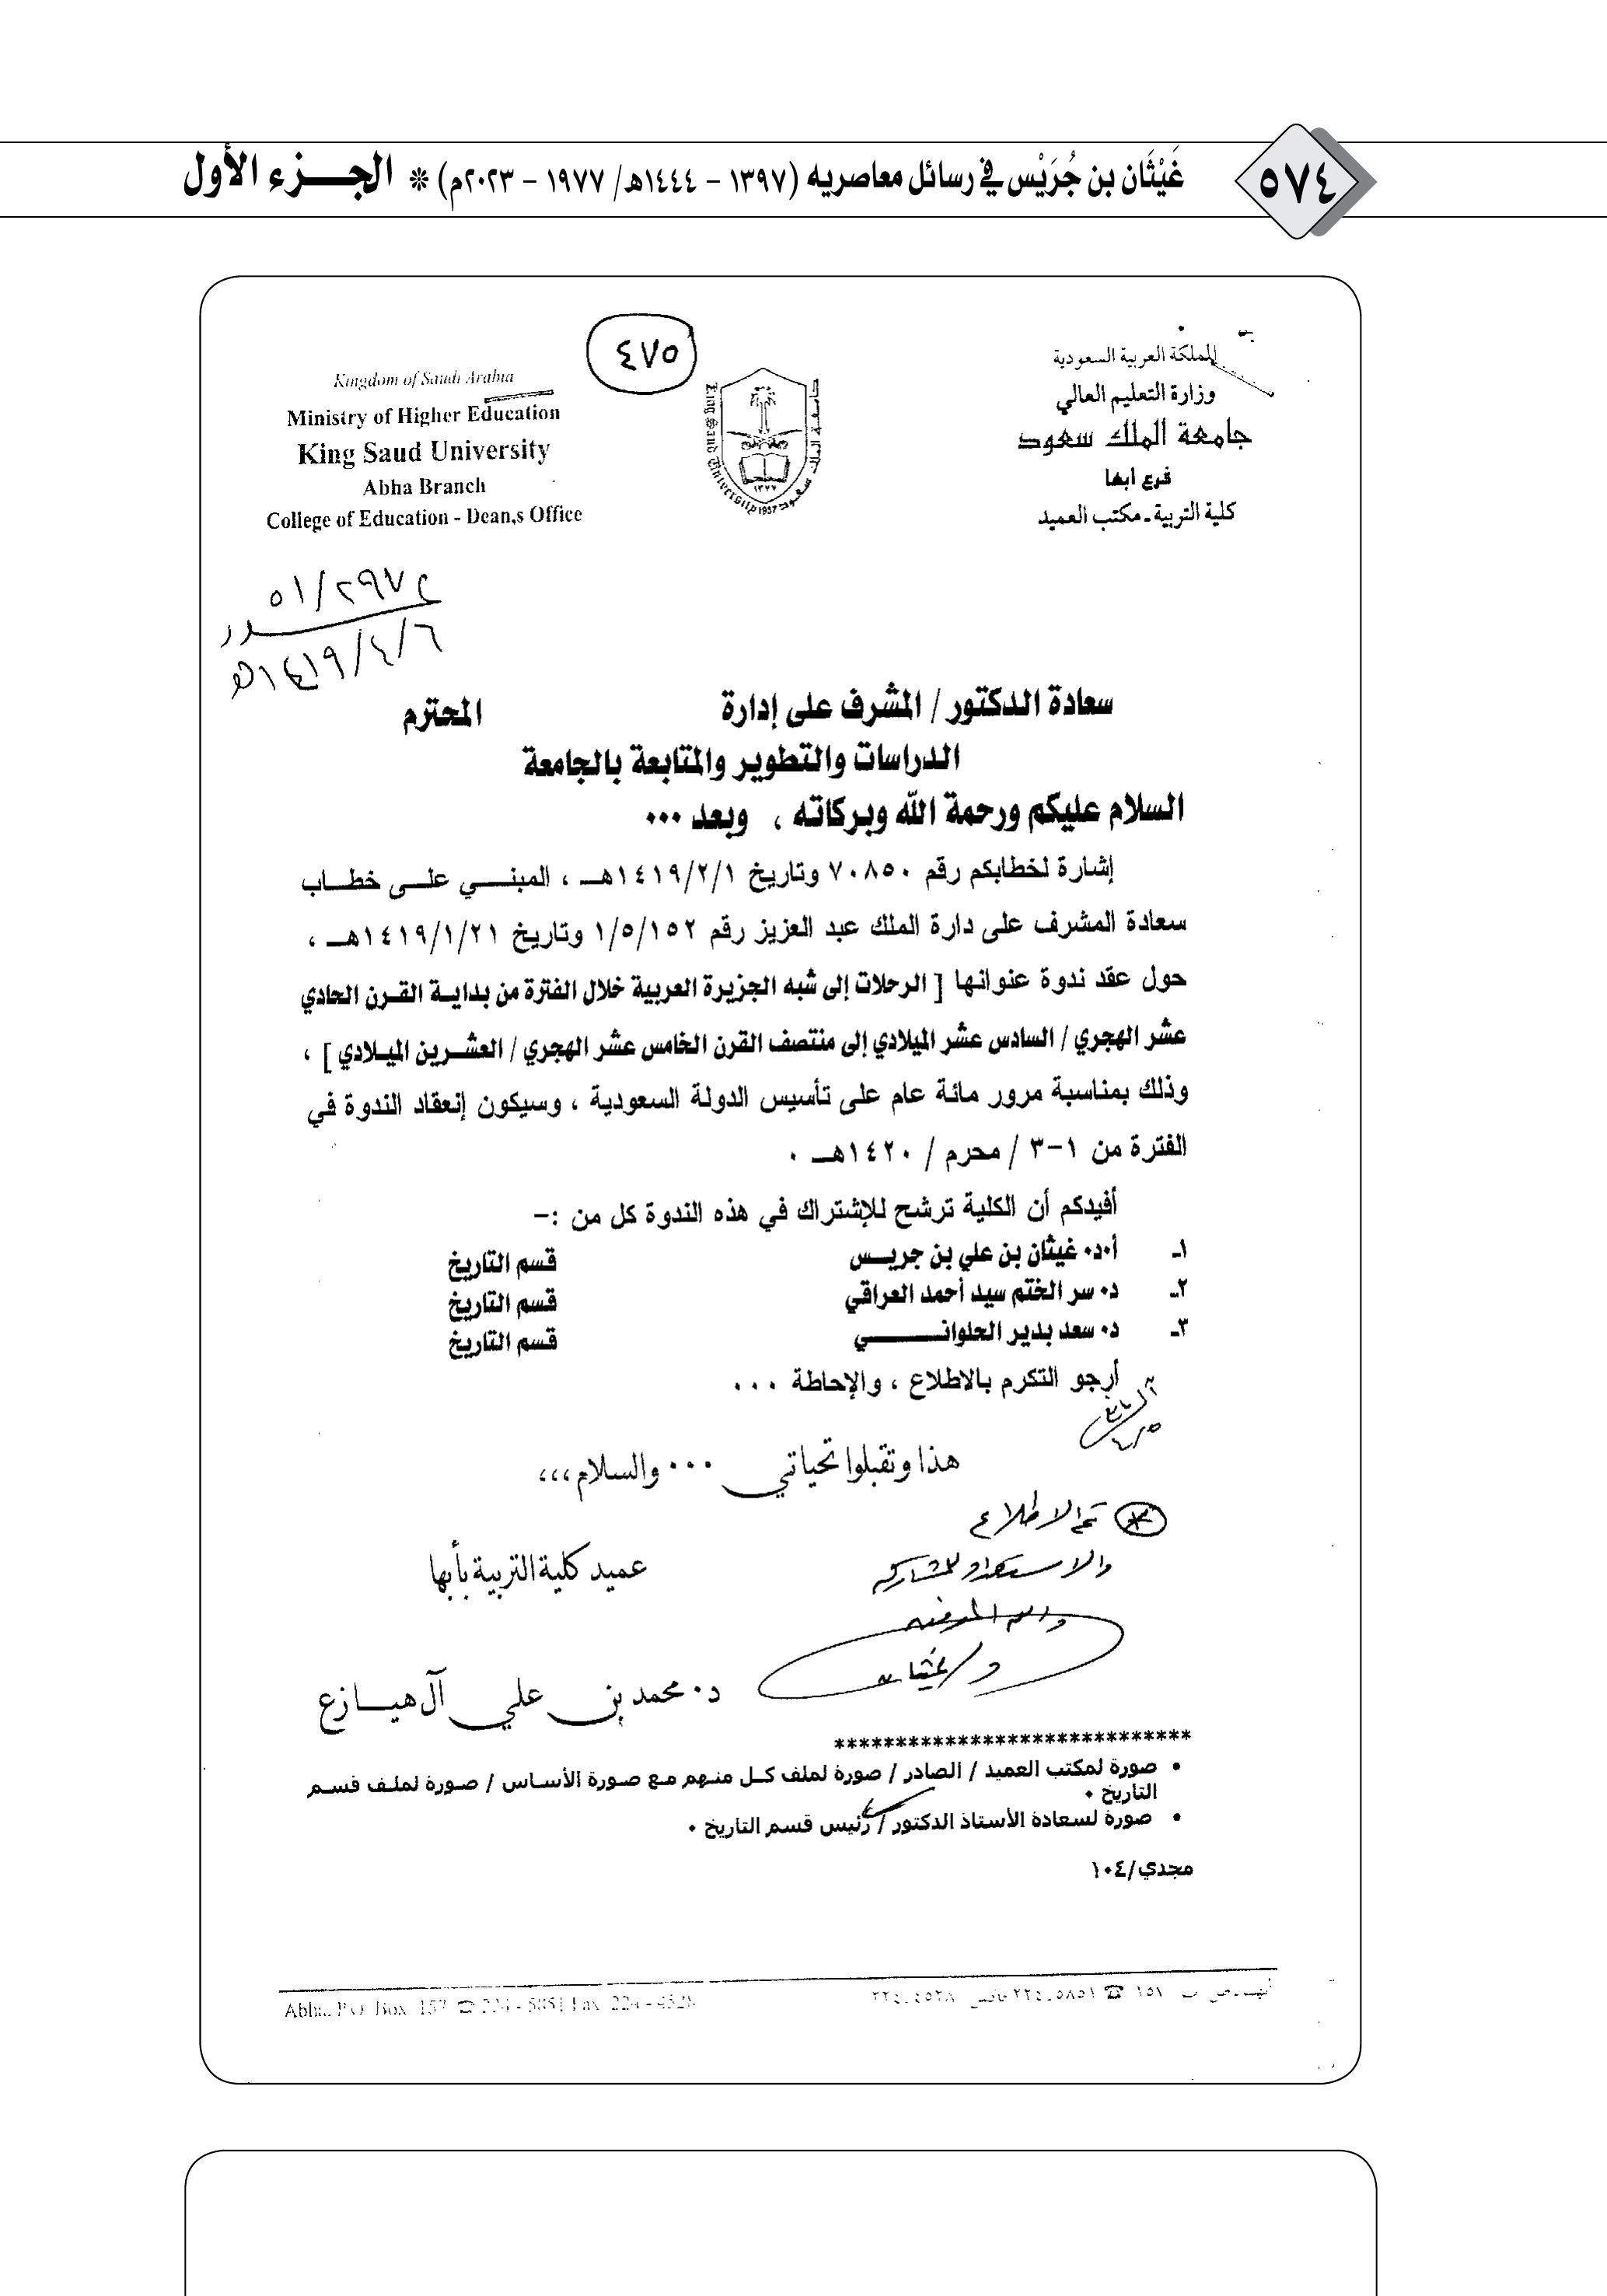 ٥٧٤
غَيْثَان بن جُرَيْس في رسائل معاصريه (١٣٩٧ - ١٤٤٤هـ/ ١٩٧٧ - ٢٠٢٣م) ❊ الجـــزء الأول
٤٧٥
المملكة العربية السعودية
وزارة التعليم العالي
جامعة الملك سعود
فرع ابها
كلية التربية ـ مكتب العميد
جامعة الملك سعود
King Saud University
١٣٧٧
1957
Kingdom of Saudi Arabia
Ministry of Higher Education
King Saud University
Abha Branch
College of Education - Dean,s Office
١٤١٩/٤/٦هـ
سعادة الدكتور / المشرف على إدارة المحترم
الدراسات والتطوير والمتابعة بالجامعة
السلام عليكم ورحمة الله وبركاته ، وبعد ...
إشارة لخطابكم رقم ٧٠٨٥٠ وتاريخ ١٤١٩/٢/١هـ ، المبني على خطاب
سعادة المشرف على دارة الملك عبد العزيز رقم ١/٥/١٥٢ وتاريخ ١٤١٩/١/٢١هـ ،
حول عقد ندوة عنوانها [ الرحلات إلى شبه الجزيرة العربية خلال الفترة من بداية القرن الحادي
عشر الهجري / السادس عشر الميلادي إلى منتصف القرن الخامس عشر الهجري / العشرين الميلادي ] ،
وذلك بمناسبة مرور مائة عام على تأسيس الدولة السعودية ، وسيكون إنعقاد الندوة في
الفترة من ١-٣ / محرم / ١٤٢٠هـ .
أفيدكم أن الكلية ترشح للإشتراك في هذه الندوة كل من :-
١ـ أ.د. غيثان بن علي بن جريـس قسم التاريخ
٢ـ د. سر الختم سيد أحمد العراقي قسم التاريخ
٣ـ د. سعد بدير الحلوانـــــي قسم التاريخ
أرجو التكرم بالاطلاع ، والإحاطة ...
هذا وتقبلوا تحياتي ... والسلام ،،،
تم الاطلاع
والاستعداد للمشاركه
والله الموفق
د/ غيثان
عميد كلية التربية بأبها
د. محمد بن علي آل هيـازع
*****************************
• صورة لمكتب العميد / الصادر / صورة لملف كل منهم مع صورة الأساس / صورة لملف قسم
التاريخ .
• صورة لسعادة الأستاذ الدكتور / رئيس قسم التاريخ .
مجدي/١٠٤